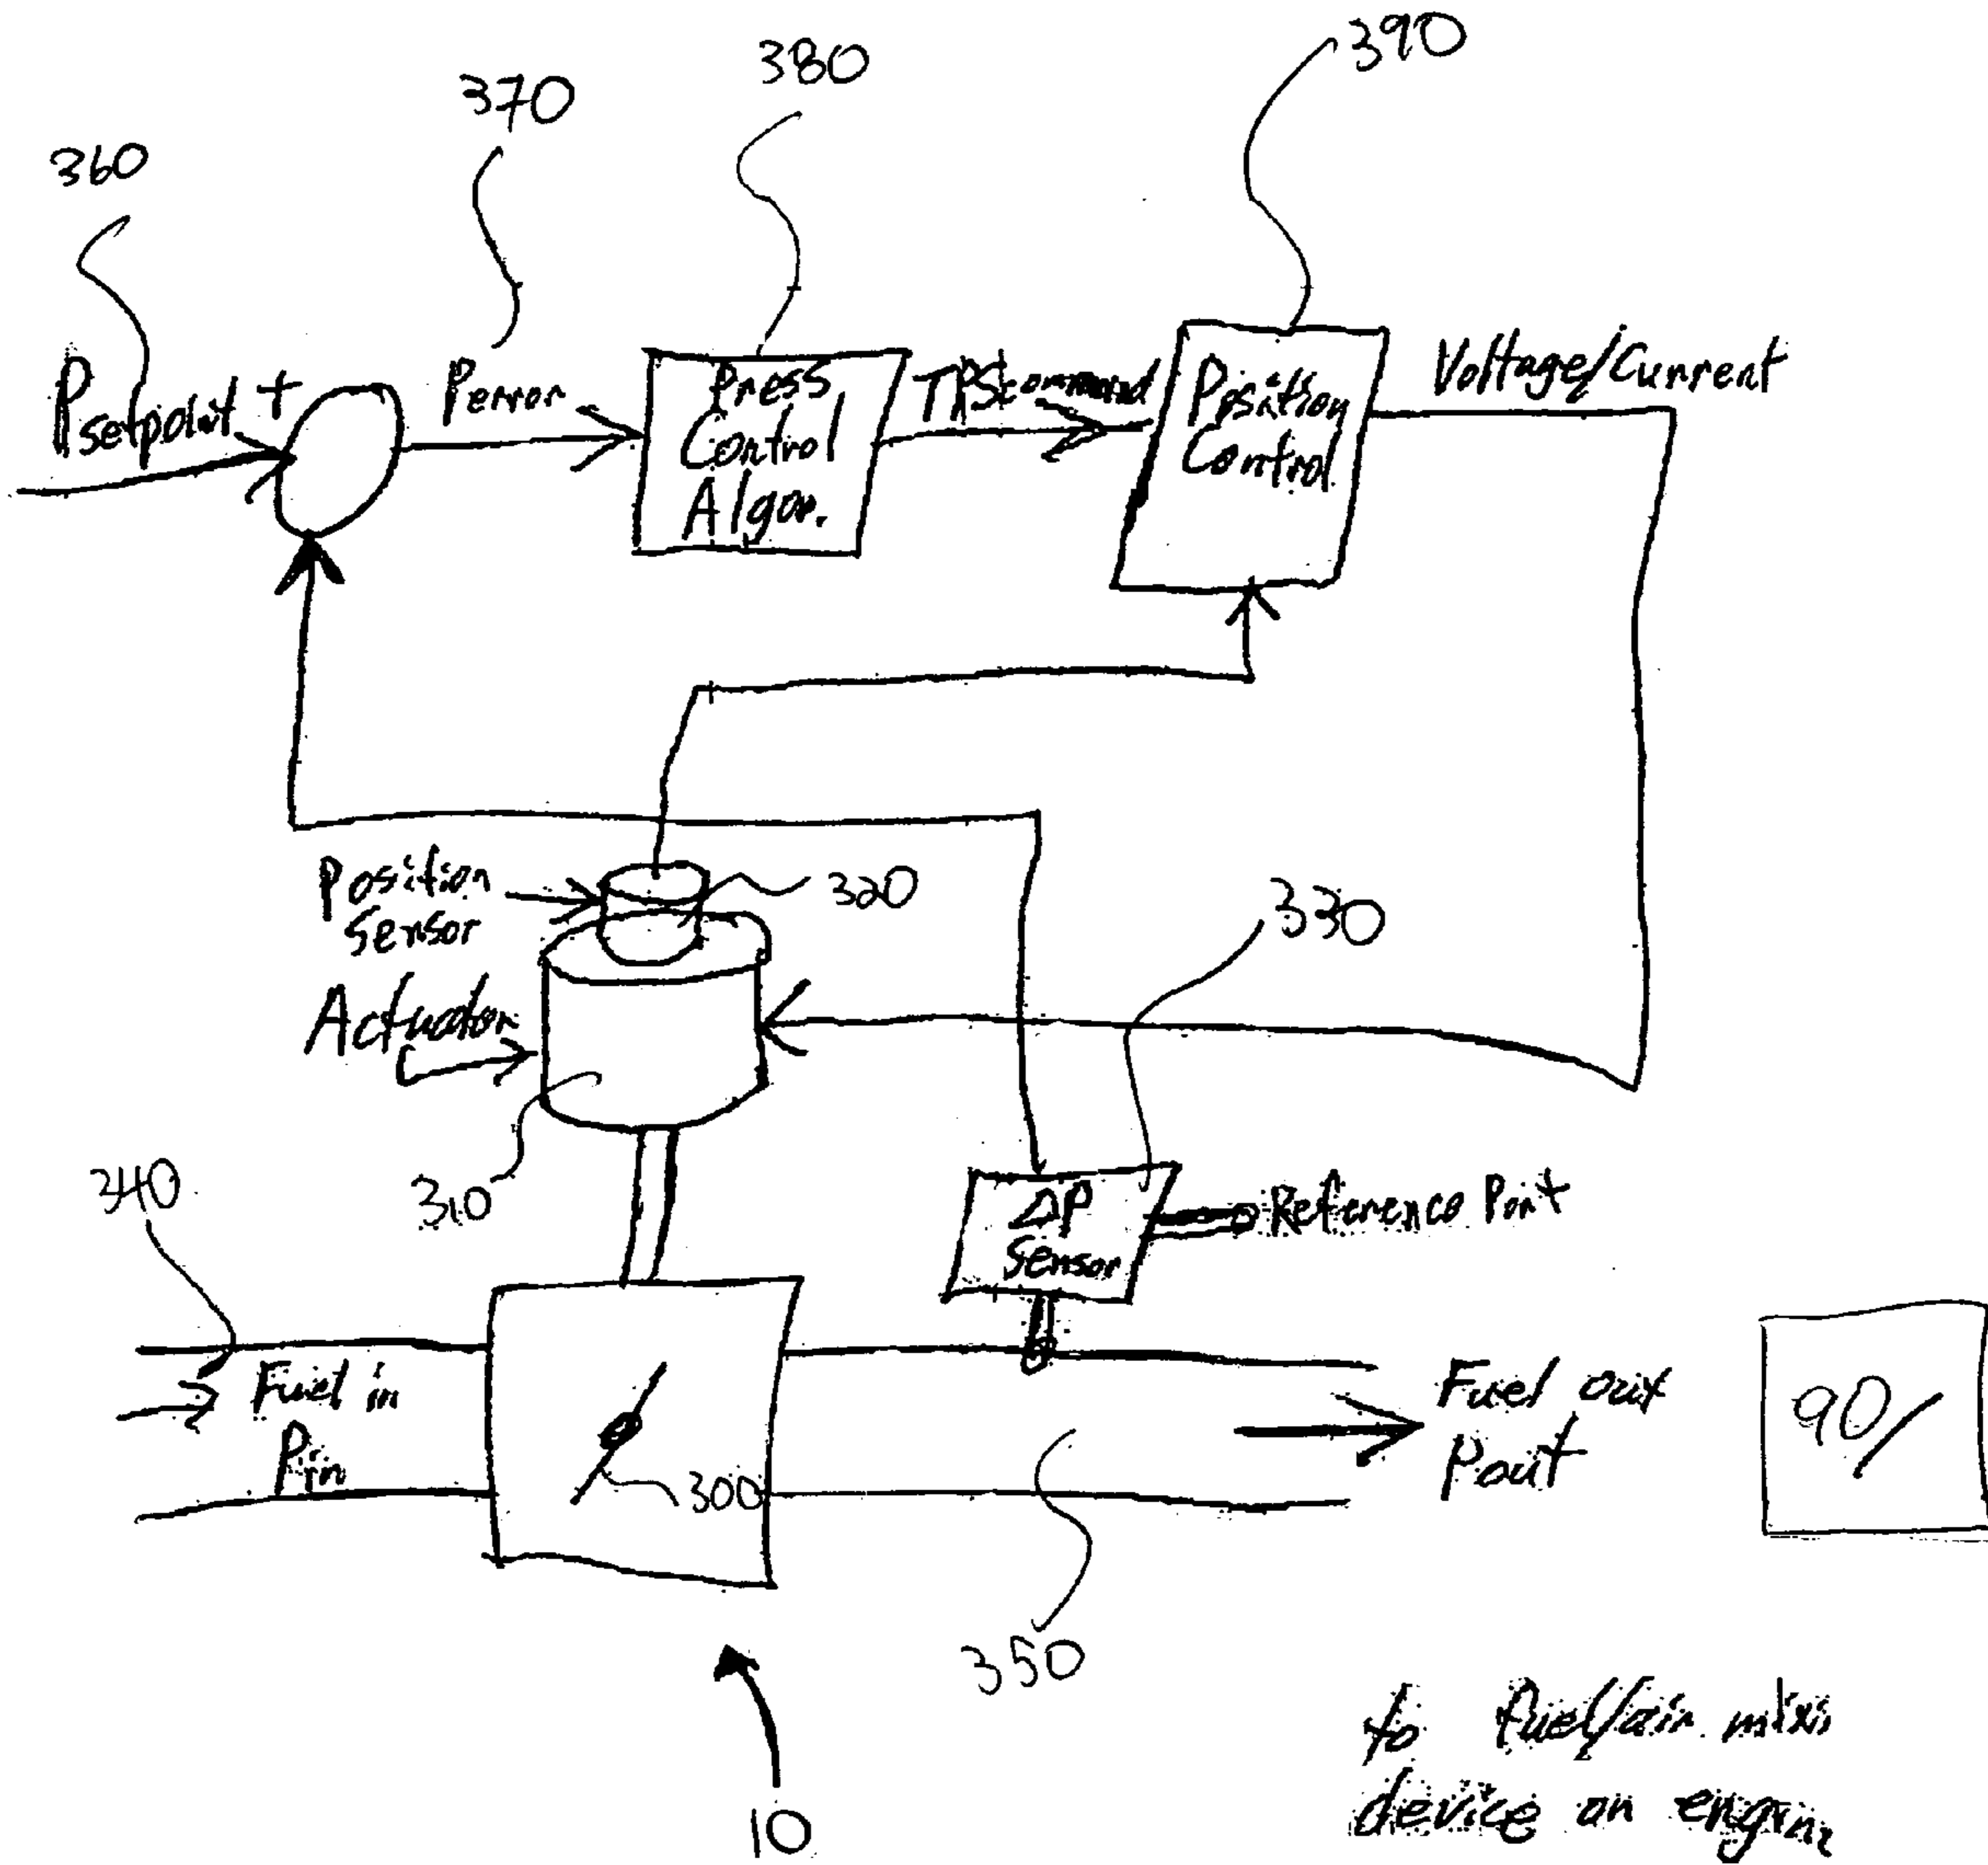 360
370
380
390
Psetpoint +
Perror
Press
Control
Algor.
TPScommand
Position
Control
Voltage/Current
Position
Sensor
320
330
Actuator
340
310
ΔP
Sensor
Reference Port
Fuel in
Pin
300
Fuel out
Pout
90
350
10
to fuel/air mixi
device on engine